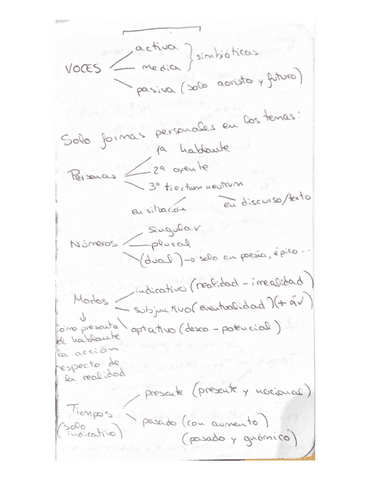 activa
VOCES media } simbióticas
pasiva (solo aoristo y futuro)
Solo formas personales en los temas:
1ª hablante
Personas 2ª oyente
3ª tiertium neutrum
en situación en discurso/texto
singular
Números plural
(dual) → solo en poesía, épico...
Modos indicativo (realidad - irrealidad)
subjuntivo (eventualidad) (+ ἄν)
optativo (deseo - potencial)
↓
como presenta
el hablante
la acción
respecto de
la realidad
presente (presente y nocional)
Tiempos
(solo indicativo)
pasado (con aumento)
(pasado y gnómico)